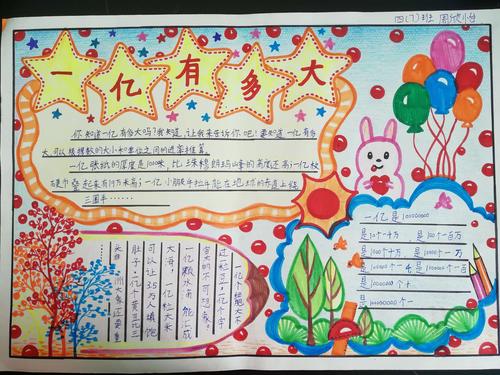 四(7)班
一亿有多大
你知道一亿有多大吗?我知道,让我来告诉你吧!要知道一亿有多
大,可以根据数的大小和单位之间的进率推算。
一亿张纸的厚度是10000米,比珠穆朗玛峰的高度还高;一亿枚
硬币叠起来有19万米高;一亿小朋友手拉手能在地球的赤道上绕
三圈半……
一亿是100000000
是10个一千万
是100个一百万
是1000个十万
是10000个一万
是100000个一千
是1000000个一百
是10000000个十
是100000000个一
一亿个细胞大不
过一粒豆,一亿个宇
宙大的不可想象;
一亿颗水滴能汇成
大海,一亿粒大米
可以让3.5万人填饱
肚子,一亿个黄豆三